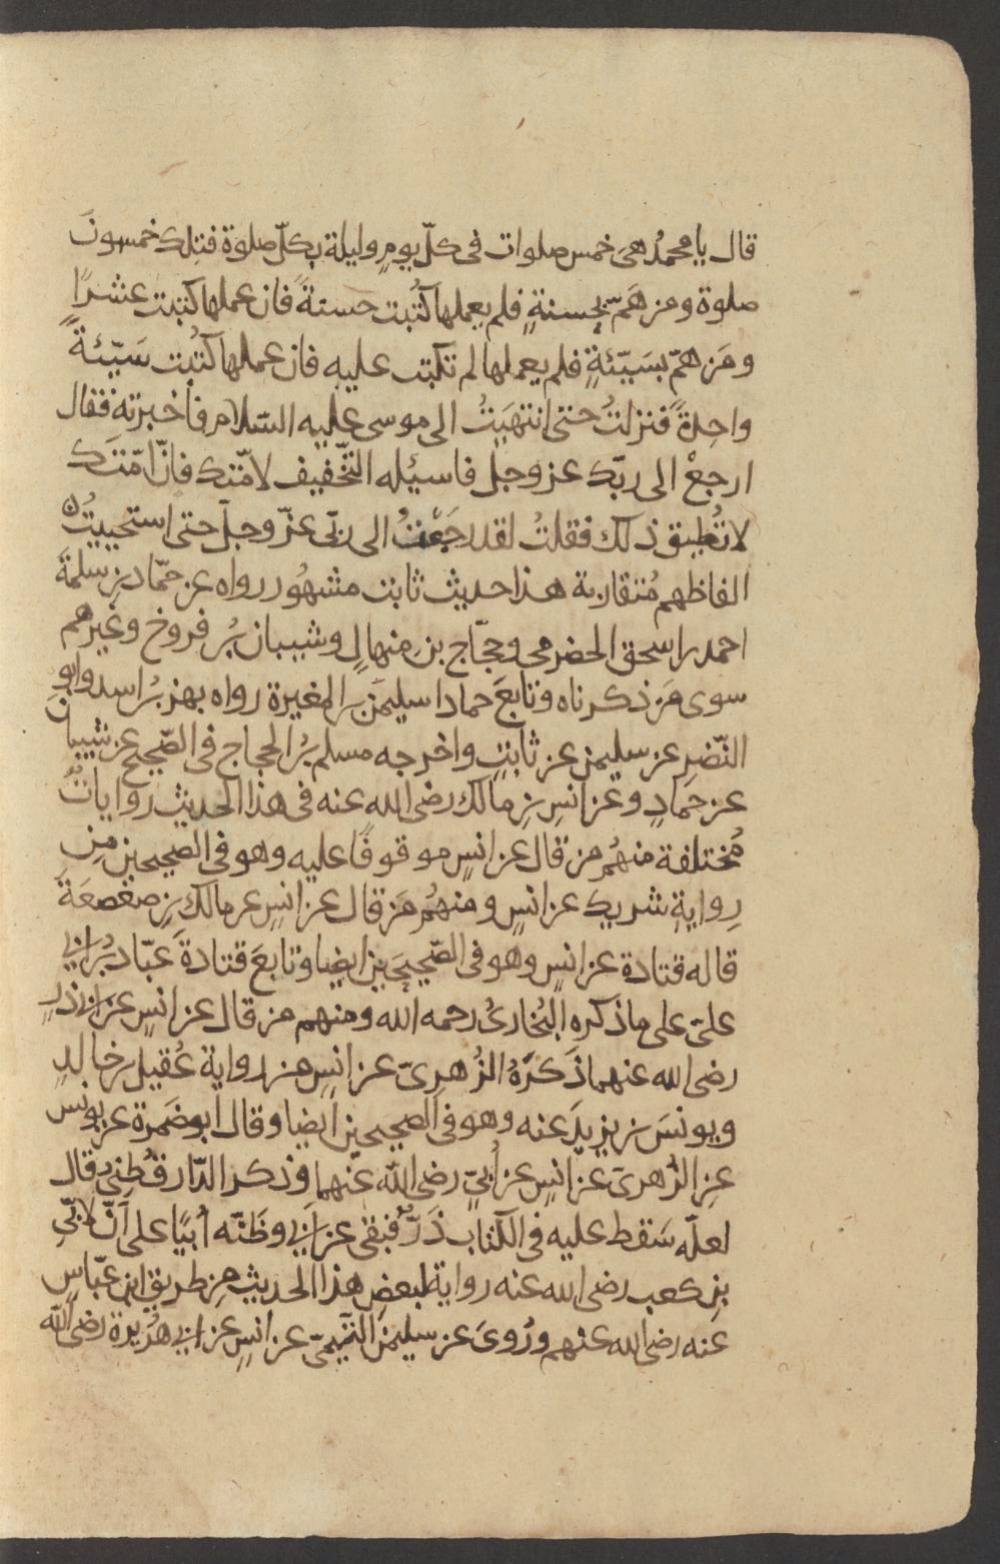 قال يا محمدُ هى خمس صلوات فى كلّ يومٍ وليلة بكلّ صلوة فتلك خمسونَ
صلوة ومن هَمّ بحسنةٍ فلم يعملها كتُبت حسنةً فان عملها كتبت عشرًا
ومَن همّ بسَيّئةٍ فلم يعملها لم تكتب عليه فان عملها كتُبت سَيّئةً
واحِدةً فنزلتُ حتى انتهَيتُ الى موسى عليه السّلام فأخبرته فقال
ارجعْ الى ربّك عز وجل فاسيئله التّخفيف لامّتك فانّ امّتَك
لا تُطيق ذلك فقلتُ لقد رجَعْتُ الى ربّى عزّ وجلّ حتى استحييتُ
الفاظهم مُتقاربة هذا حديث ثابت مشهُور رواه عن حمّاد بن سلمةَ
احمد بن اسحق الحضرمى وحجّاج بن مِنهالٍ وشيبان بُن فروخ وغيرهم
سوى مَن ذكرناه وتابعَ حمادا سليمَن بن المغيرة رواه بهز بُن اسد وابو
النّضرِ عن سليمن عن ثابتٍ واخرجه مسلم بُن الحجاج فى الصّحيح عن شيبان
عن حمادٍ وعن انسِ بنِ مالك رضى الله عنه فى هذا الحديث روايات
مُختلفة منهُم من قال عن انسٍ موقوفًا عليه وهو فى الصحيحين مِن
رِوايةِ شريك عن انسٍ ومنهُم مَن قال عن انسٍ عن مالك بنِ صعْصعَةَ
قاله قتادة عن انسٍ وهو فى الصّحيحَين ايضا وتابعَ قتادةَ عبّاد بُن ابى
علىّ على ما ذكره البُخارىُّ رحمه الله ومنهم من قال عن انسٍ عن ابى ذرٍ
رضى الله عنهما ذَكرَهُ الزُهرِىّ عن انسٍ من رواية عُقيل بن خالدٍ
ويونسَ بن يزيدَ عنه وهو فى الصحيحين ايضا وقال ابو ضَمرة عن يونس
عنِ الزُهرىّ عن انسٍ عن أُبىّ رضى الله عنهما وذكر الدّارقُطنىّ قال
لعلّه سَقط عليه فى الكتاب ذَرّ فبقى عن ابى وظَنّه أُبيًا على أنّ لابىّ
بنِ كعب رضى الله عنه رواية لبعض هذا الحديث مِن طريق ابن عبّاسٍ
عنه رضى الله عنهم ورُوىَ عن سليمنَ التّيمىّ عن انسٍ عن ابى هُريرة رضى الله